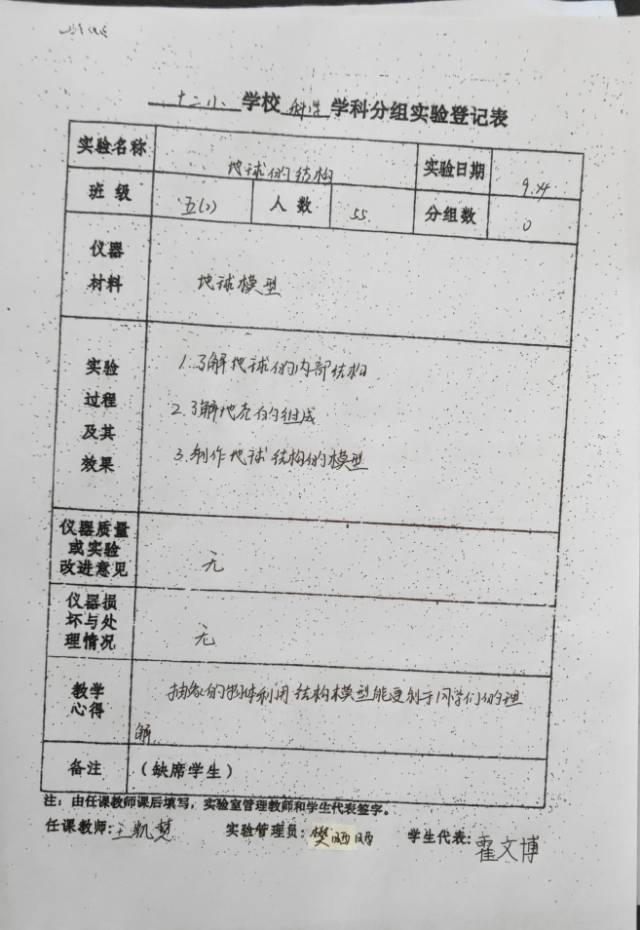 十二小 学校 科学 学科分组实验登记表
实验名称 地球的结构 实验日期 9.24
班 级 五(2) 人 数 55 分组数 0
仪器
材料
地球模型
实验
过程
及其
效果
1.了解地球的内部结构
2.了解地壳的组成
3.制作地球结构的模型
仪器质量
或实验
改进意见
无
仪器损
坏与处
理情况
无
教学
心得
抽象的物体利用结构模型能更利于同学们的理
解.
备注 (缺席学生)
注：由任课教师课后填写，实验室管理教师和学生代表签字。
任课教师: 王凯慧 实验管理员: 樊晒晒 学生代表: 霍文博